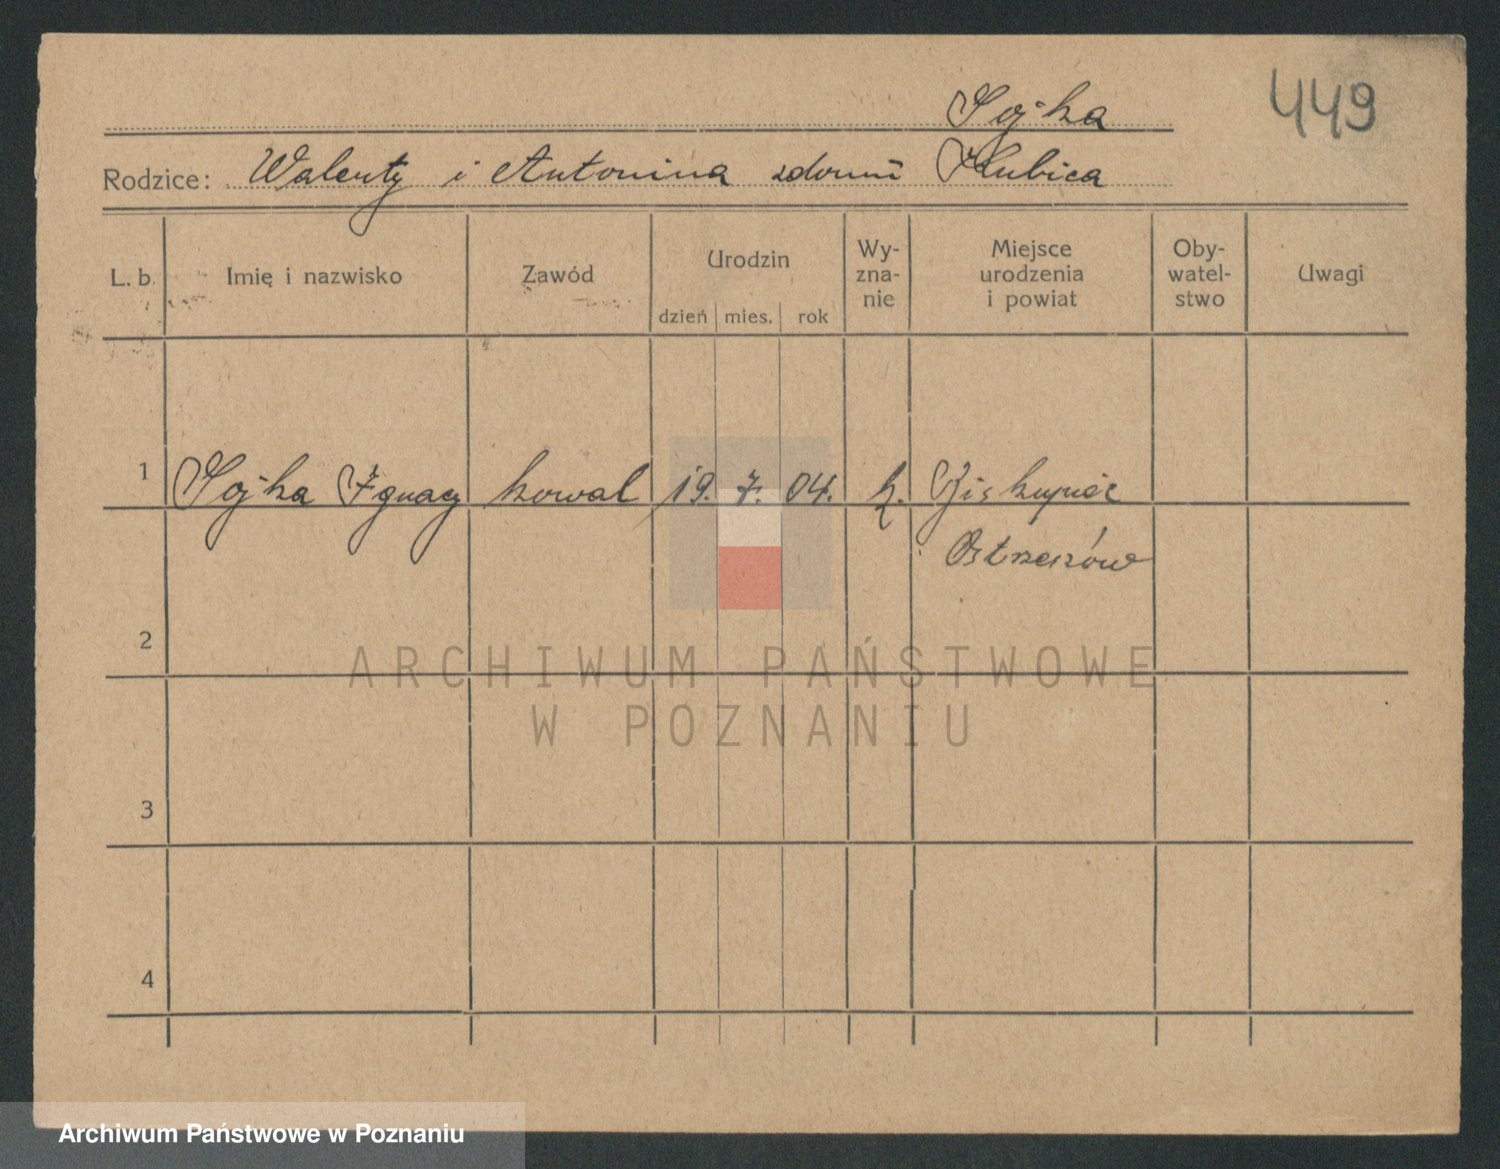 449
Sojka
Rodzice: Walenty i Antonina zdomu
L. b. Imię i nazwisko Zawód Urodzin dzień mies. rok Wy-zna-nie Miejsce urodzenia i powiat Oby-watel-stwo Uwagi
1 Sojka Ignacy kowal 19. 7. 04. k.
Ostrzeszów
2
ARCHIWUM PAŃSTWOWE
W POZNANIU
3
4
Archiwum Państwowe w Poznaniu